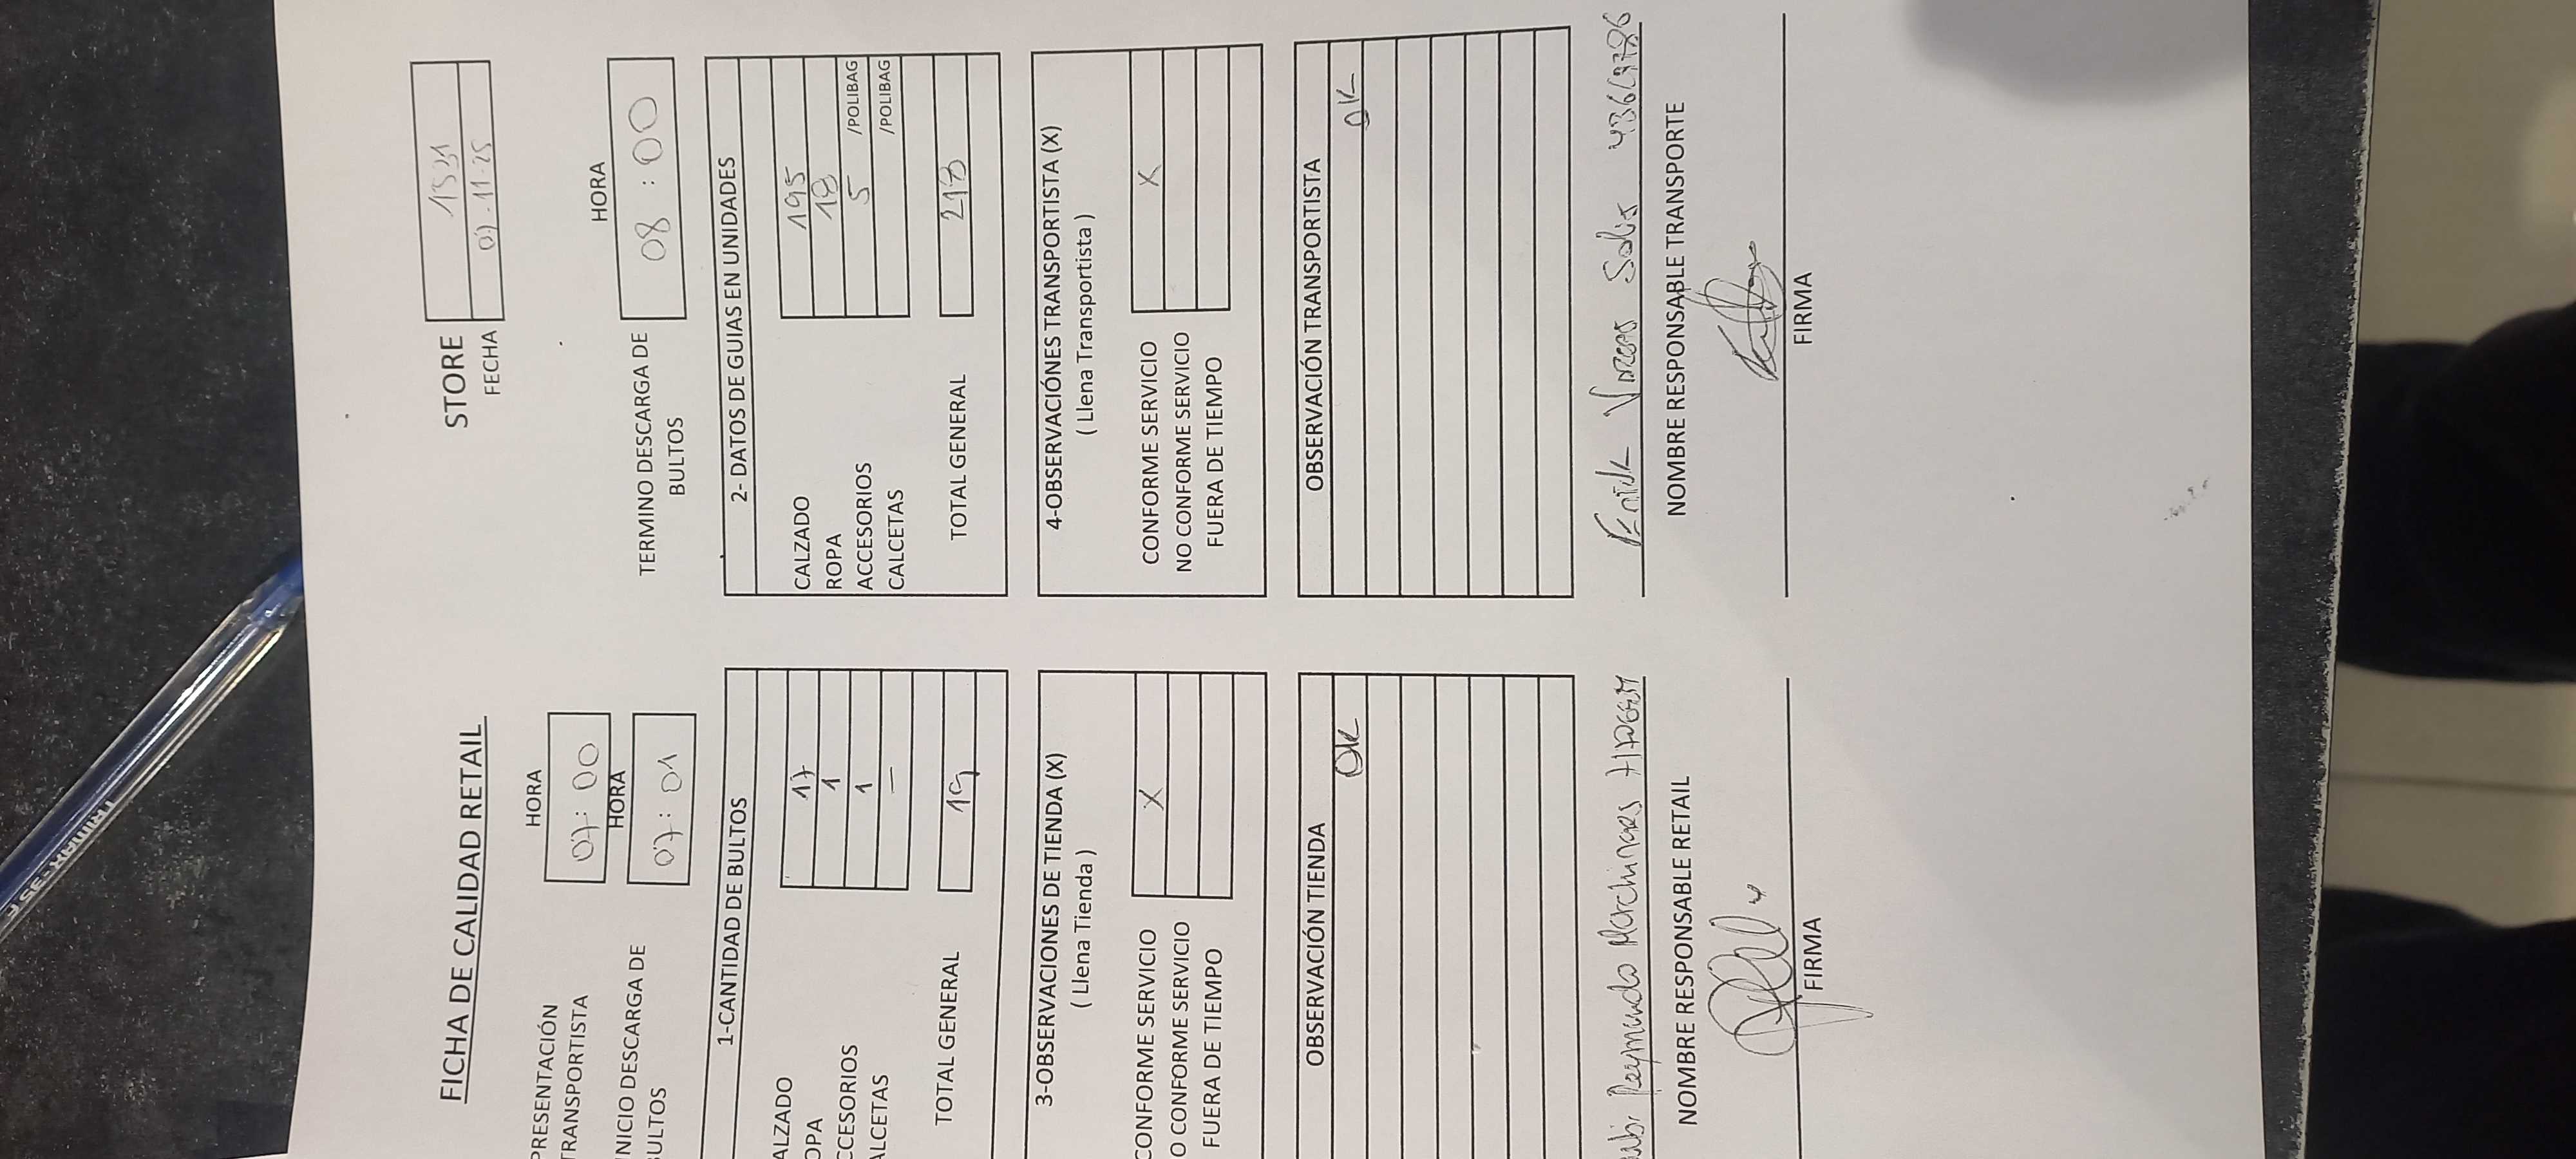 FICHA DE CALIDAD RETAIL
STORE 1321
FECHA 07-11-25
HORA
PRESENTACIÓN
TRANSPORTISTA 07:00
HORA
HORA
NICIO DESCARGA DE
BULTOS 07:01
TERMINO DESCARGA DE
BULTOS 08:00
1-CANTIDAD DE BULTOS
ALZADO 17
OPA 1
CCESORIOS 1
ALCETAS —
TOTAL GENERAL 19
2- DATOS DE GUIAS EN UNIDADES
CALZADO 195
ROPA 18
ACCESORIOS 5 /POLIBAG
CALCETAS /POLIBAG
TOTAL GENERAL 218
3-OBSERVACIONES DE TIENDA (X)
( Llena Tienda )
CONFORME SERVICIO X
O CONFORME SERVICIO
FUERA DE TIEMPO
4-OBSERVACIÓNES TRANSPORTISTA (X)
( Llena Transportista )
CONFORME SERVICIO X
NO CONFORME SERVICIO
FUERA DE TIEMPO
OBSERVACIÓN TIENDA
OK
OBSERVACIÓN TRANSPORTISTA
OK
NOMBRE RESPONSABLE RETAIL
FIRMA
NOMBRE RESPONSABLE TRANSPORTE
FIRMA